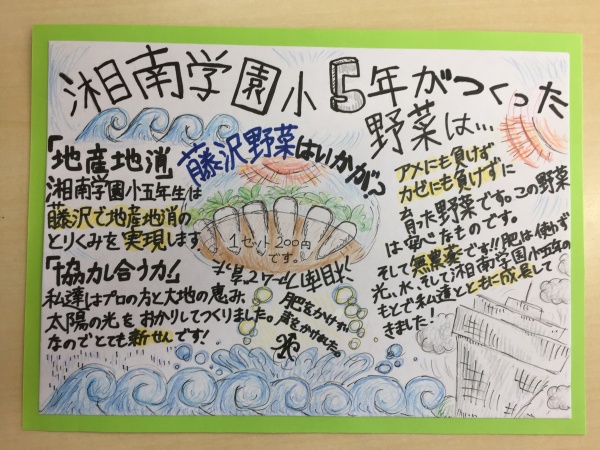 湘南学園小5年がつくった
野菜は…
藤沢野菜はいかが?
「地産地消」
湘南学園小五年生は
藤沢で地産地消の
とりくみを実現します
「協力し合う力」
私達はプロの方と大地の恵み、
太陽の光をおかりしてつくりました。
なのでとても新せんです!
1セット200円
です。
肥をかけずに
声をかけました。
アメにも負けず
カゼにも負けずに
育った野菜です。この野菜
は安心なものです。
そして無農薬です!!肥は使わず
光、水、そして湘南学園小五年の
もとで私達とともに成長して
きました!